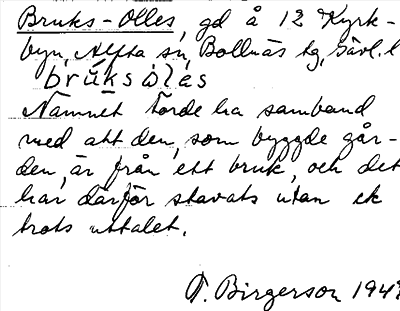 Bruks-Olles, gd å 12 Kyrk-
byn, Alfta sn, Bollnäs tg, Gävl. l
brúksòlas
Namnet torde ha samband
med att den, som byggde går-
den, är från ett bruk, och det
har därför stavats utan ck
trots uttalet.
T. Birgerson 194